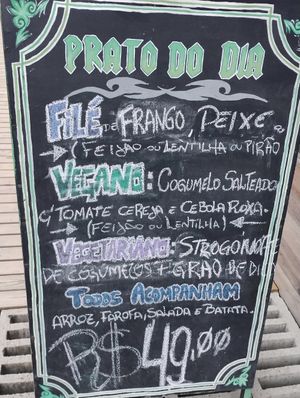 PRATO DO DIA
FILÉ DE FRANGO, PEIXE
(FEIJÃO OU LENTILHA OU PIRÃO
VEGANO: COGUMELO SALTEADO
C/ TOMATE CEREJA E CEBOLA ROXA.
(FEIJÃO OU LENTILHA)
VEGETARIANO: STROGONOFF
DE COGUMELOS + GRÃO DE BICO
TODOS ACOMPANHAM
ARROZ, FAROFA, SALADA E BATATA.
R$ 49,00